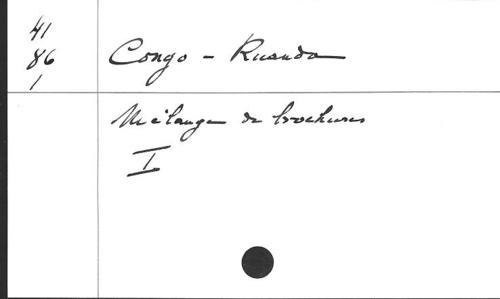 41
86
1
Congo - Ruanda
Mélange de brochures
I